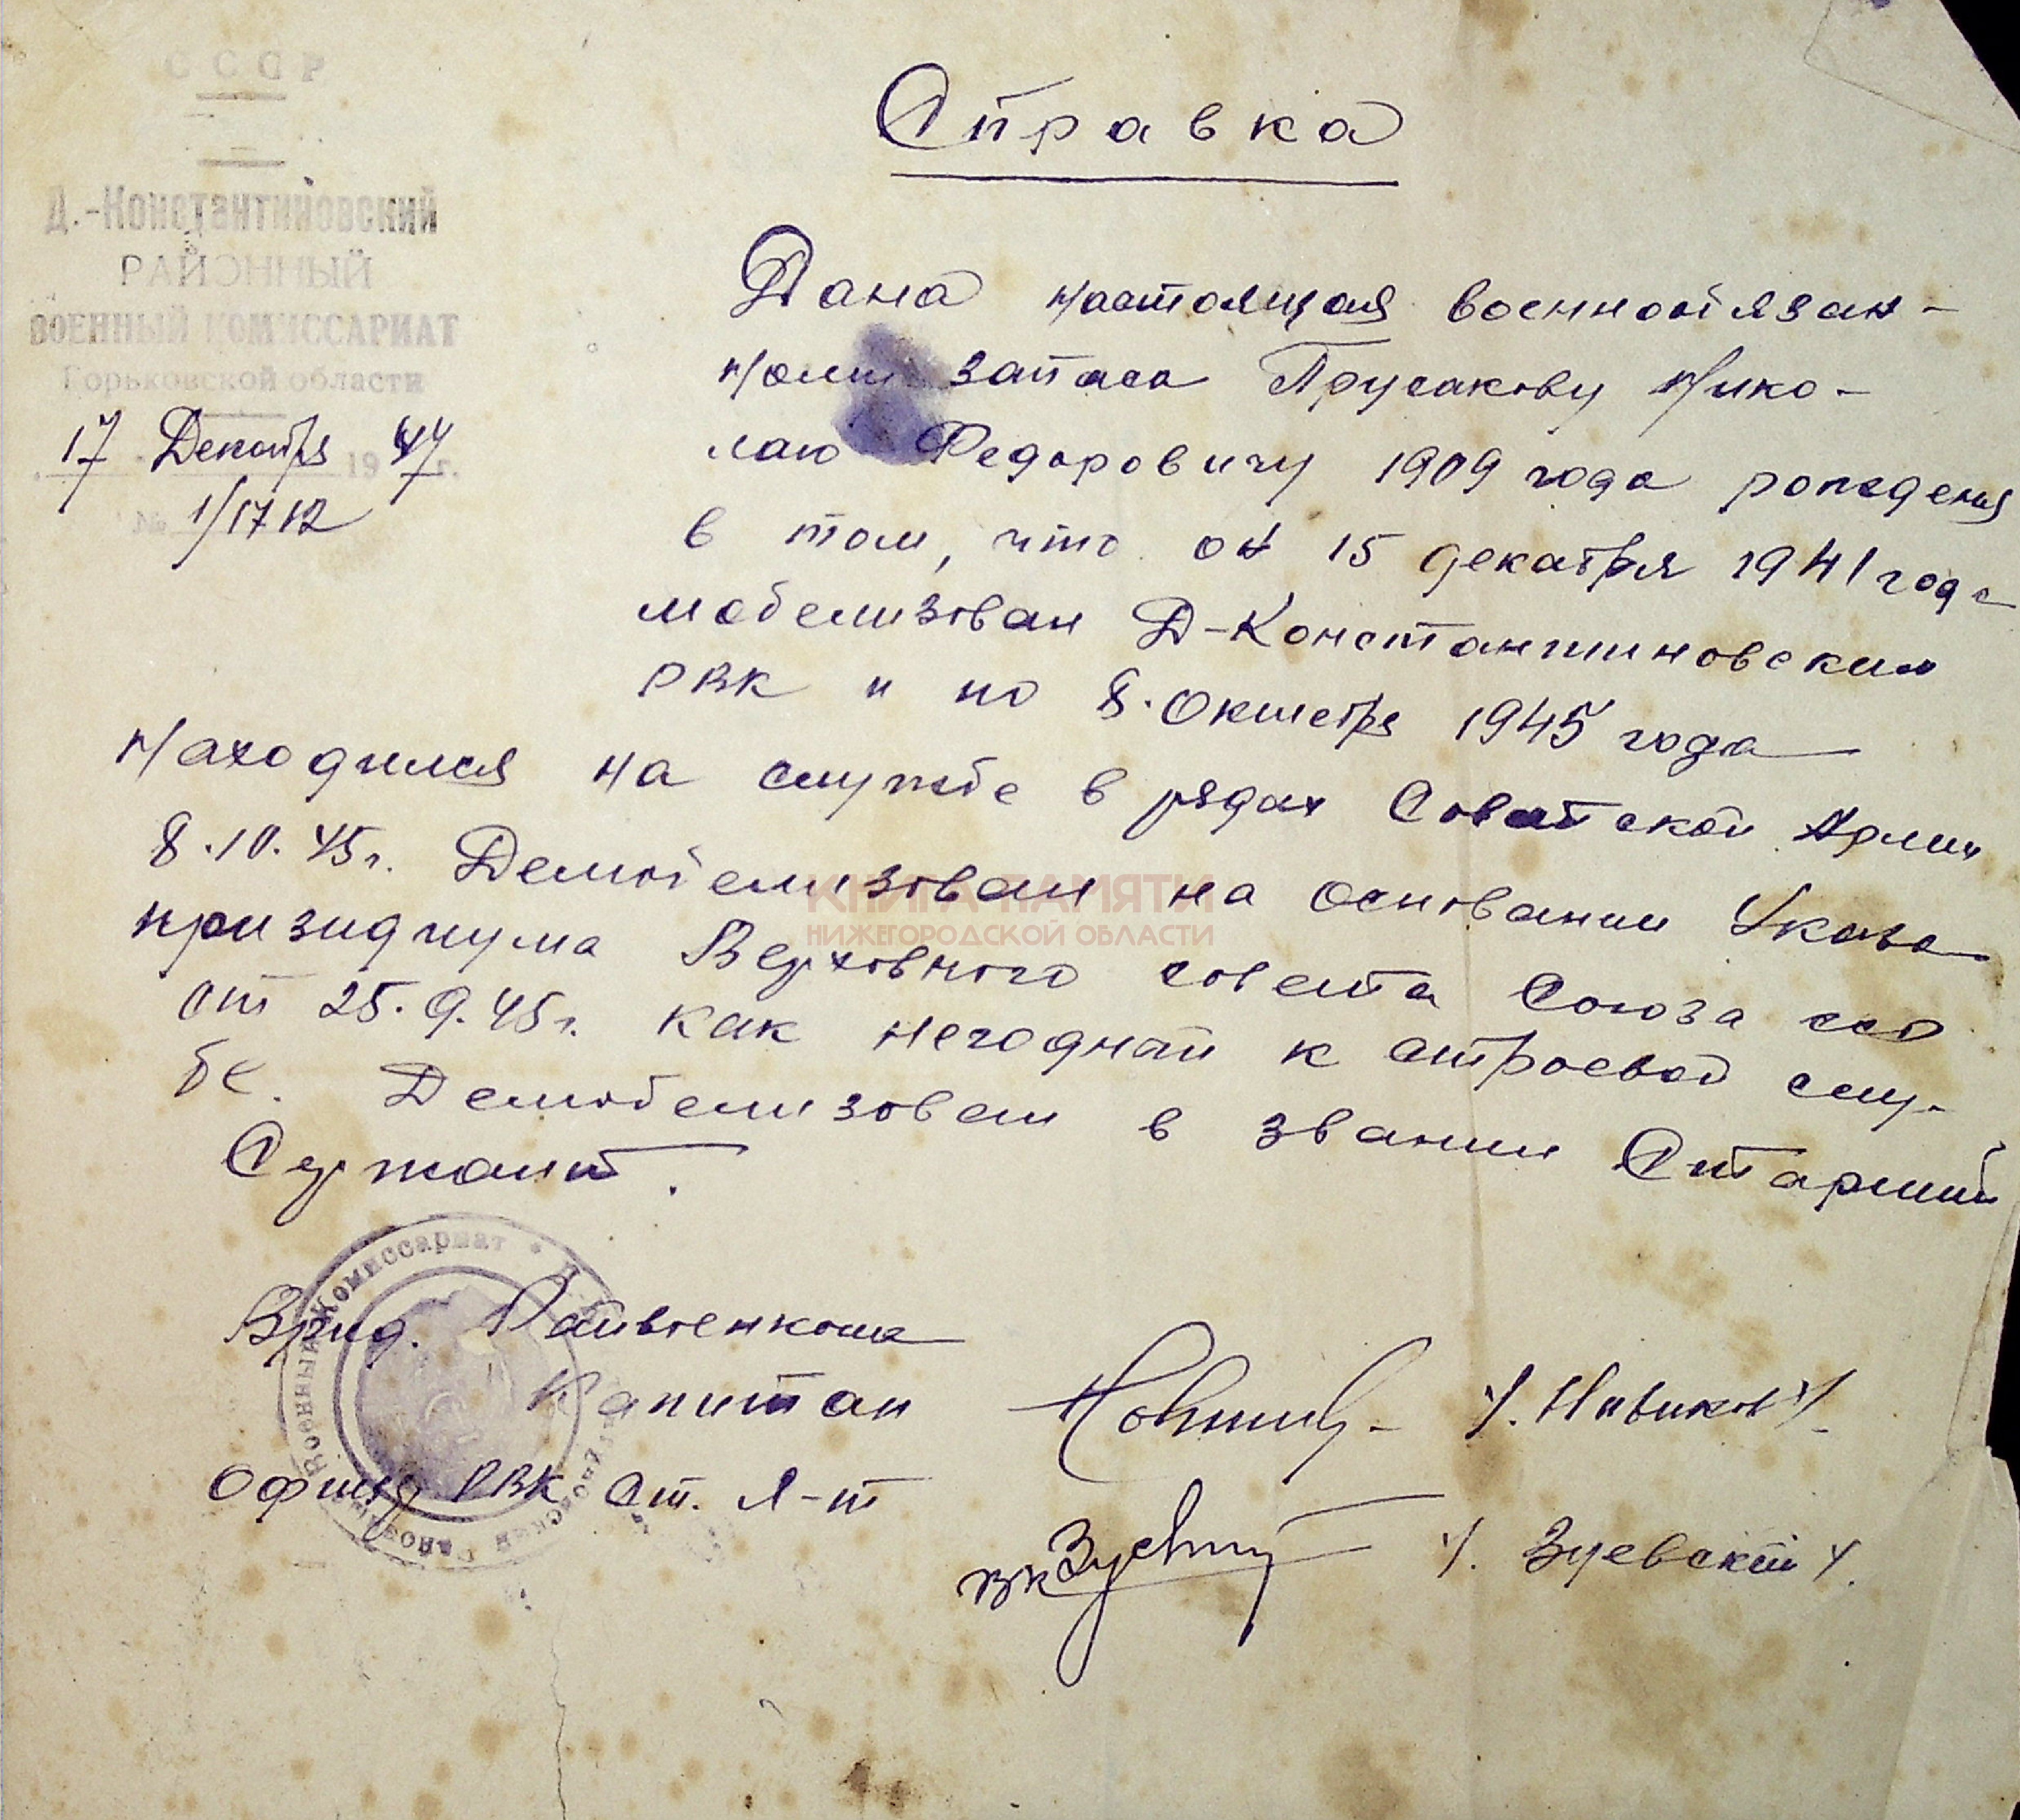 СССР
Д.-Константиновский
РАЙОННЫЙ
ВОЕННЫЙ КОМИССАРИАТ
Горьковской области
17 Декабря 1947 г.
№ 1/1712
Справка
Дана настоящая военнообязан-
ному запаса Прусакову Нико-
лаю Федоровичу 1909 года рождения
в том, что он 15 декабря 1941 года
мобелизован Д-Константиновским
РВК и по 8. Октября 1945 года
находился на службе в рядах Советской Армии
8.10.45г. Демобелизован на основании Указа
призидиума Верховного совета Союза ССР
от 25.9.45г. как негодный к строевой служ-
бе. Демобелизован в звании Старший
Сержант.
Врид. Райвоенкома
Капитан /. Новиков /.
Офицер РВК Ст. Л-т /. Зуевский /.
Военный Комиссариат
КНИГА ПАМЯТИ
НИЖЕГОРОДСКОЙ ОБЛАСТИ